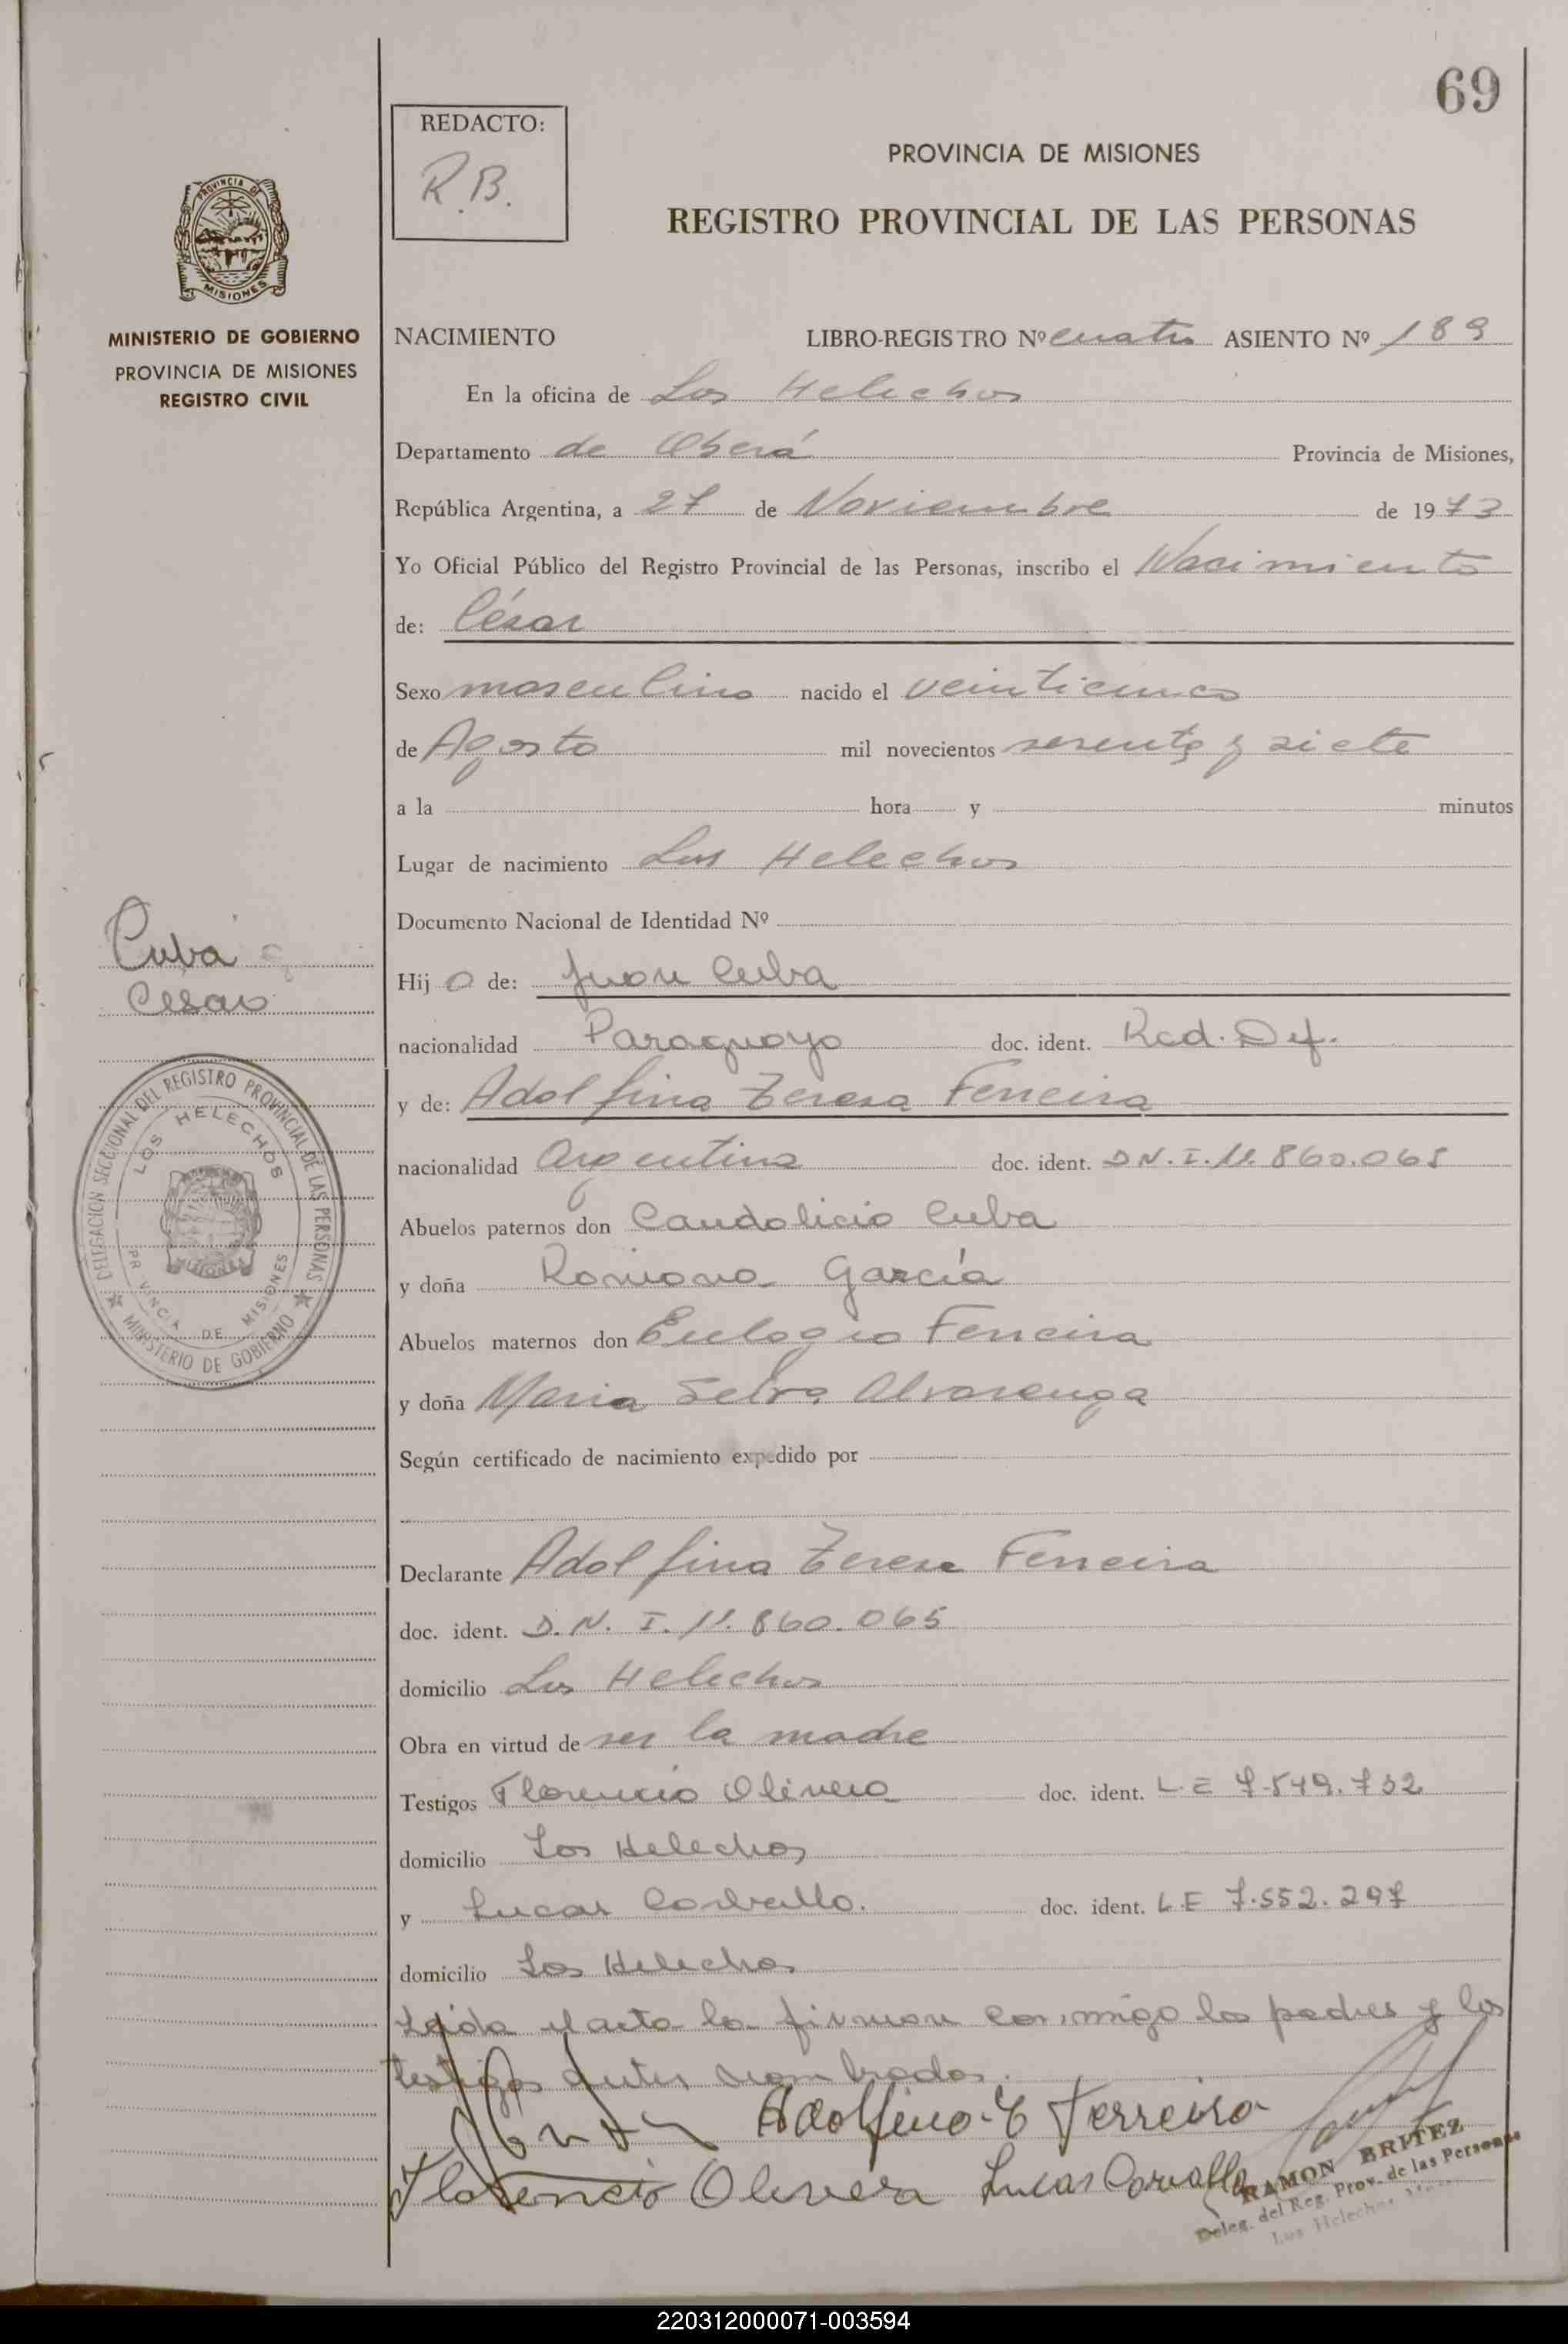 69
REDACTO:
R.B.
PROVINCIA DE MISIONES
REGISTRO PROVINCIAL DE LAS PERSONAS
PROVINCIA DE
MISIONES
MINISTERIO DE GOBIERNO
PROVINCIA DE MISIONES
REGISTRO CIVIL
NACIMIENTO LIBRO-REGISTRO Nº cuatro ASIENTO Nº 189
En la oficina de Los Helechos
Departamento de Oberá Provincia de Misiones,
República Argentina, a 27 de Noviembre de 1973
Yo Oficial Público del Registro Provincial de las Personas, inscribo el Nacimiento
de: César
Sexo masculino nacido el veinticinco
de Agosto mil novecientos sesenta y siete
a la hora y minutos
Lugar de nacimiento Los Helechos
Documento Nacional de Identidad Nº
Cuba
Cesar
Hijo de: Juan Cuba
nacionalidad Paraguayo doc. ident. Rad. Def.
y de: Adolfina Teresa Ferreira
nacionalidad Argentina doc. ident. D.N.I. 11.860.065
Abuelos paternos don Candolicio Cuba
y doña Romana García
Abuelos maternos don Eulogio Ferreira
y doña Maria Selva Alvarenga
DELEGACION SECCIONAL DEL REGISTRO PROVINCIAL DE LAS PERSONAS
LOS HELECHOS
MISIONES
PR VINCIA DE MISIONES
MINISTERIO DE GOBIERNO
Según certificado de nacimiento expedido por
Declarante Adolfina Teresa Ferreira
doc. ident. D.N.I. 11.860.065
domicilio Los Helechos
Obra en virtud de ser la madre
Testigos Florencio Olivera doc. ident. L.E 7.549.732
domicilio Los Helechos
y Lucas Carballo. doc. ident. L.E 7.552.297
domicilio Los Helechos
Leida el acta la firman conmigo los padres y los
testigos antes nombrados.
Adolfina T Ferreira
Florencio Olivera Lucas Carvallo
RAMON BRITEZ
Deleg. del Reg. Prov. de las Personas
Los Helechos
220312000071-003594